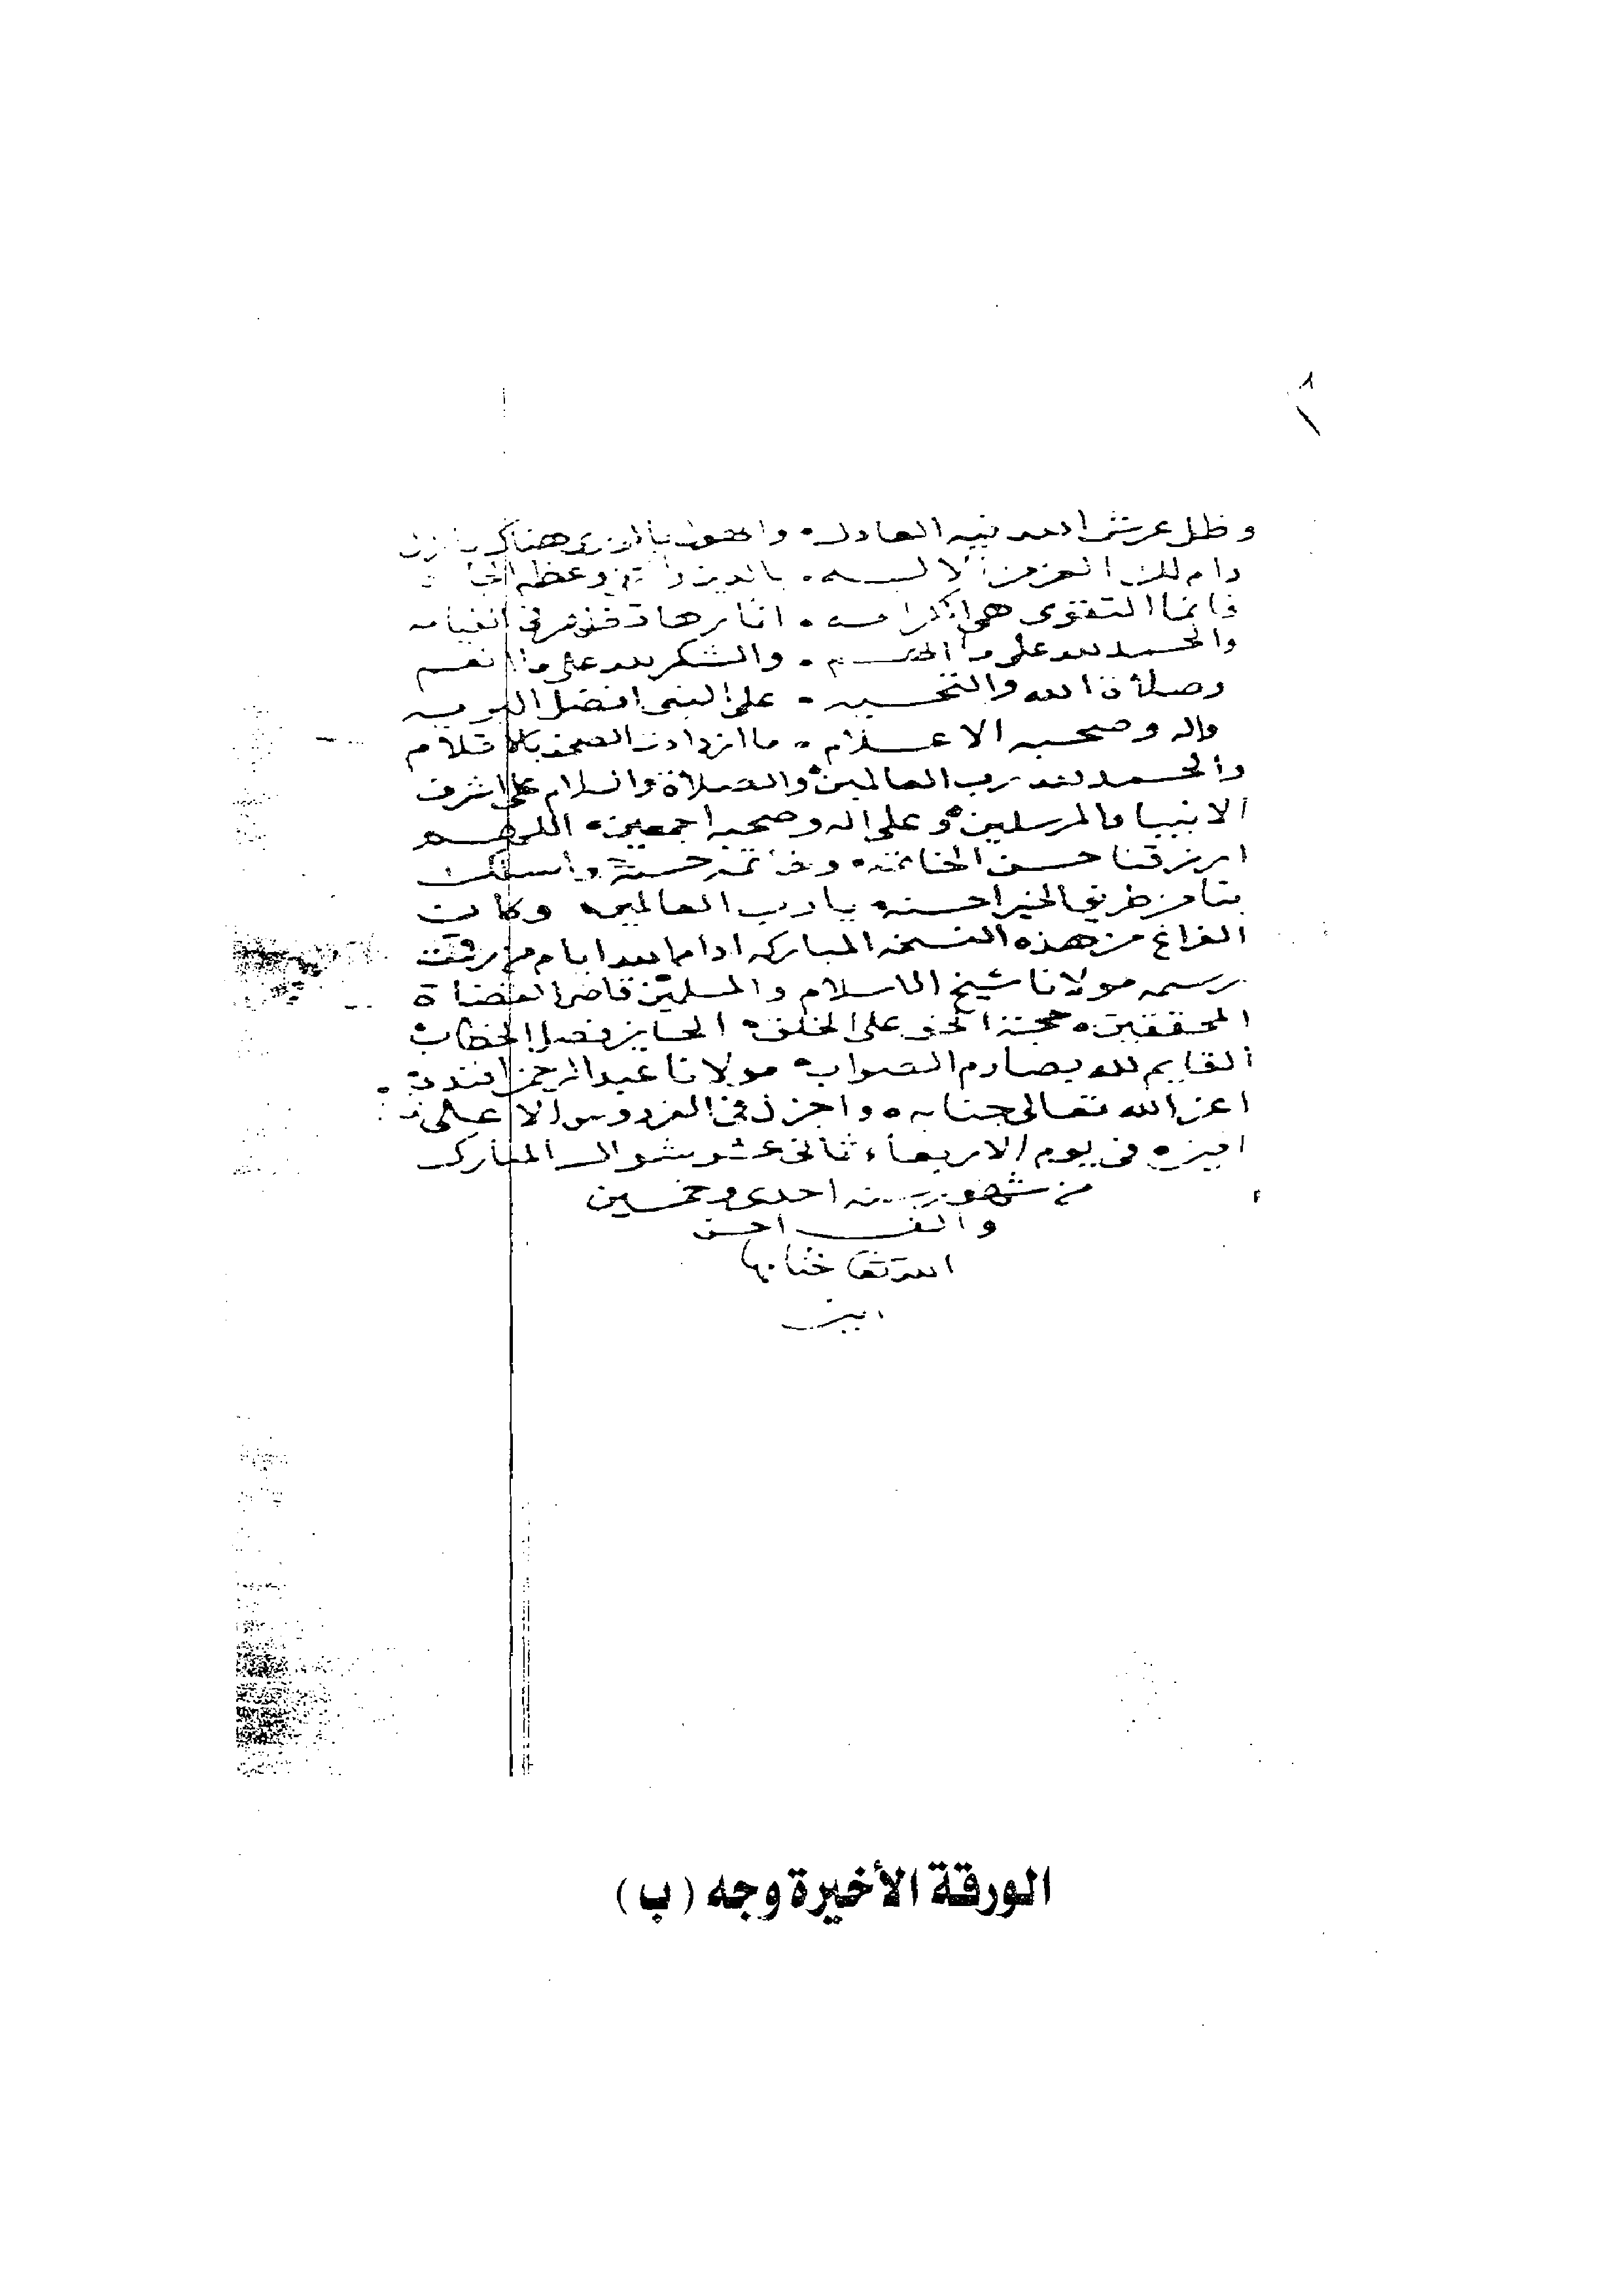 وظل عرش الله فيه العادل • هناك
دام العز من • بالدين وعظم
فانما التقوى هى الكرامه • اثارها فى القيامه
والحمد لله على ما • والشكر لله على ما انعم
وصلاة الله والتحيه • على النبى افضل البريه
واله وصحبه الاعلام • ما ازدادت الصحف بالاقلام
والحمد لله رب العالمين والصلاة والسلام على اشرف
الانبيا والمرسلين وعلى اله وصحبه اجمعين اللهم
ارزقنا حسن الخاتمه وخاتمة حسنة واسلك
بنا من طريق الخير احسنه يا رب العالمين وكانت
الفراغ من هذه النسخه المباركه ادام الله ايام من
رسمه مولانا شيخ الاسلام والمسلمين قاضى القضاة
المحققين حجة الحق على الخلق الحايز فصل الخطاب
القايم لله بصارم الصواب مولانا عبد الرحمن افندى
اعز الله تعالى جنابه فى الفردوس الاعلى
امين فى يوم الاربعاء ثانى عشر شوال المبارك
من شهور سنه احدى وخمسين
والف احسن
الله تعا ختامها
امين
الورقة الأخيرة وجه (ب)